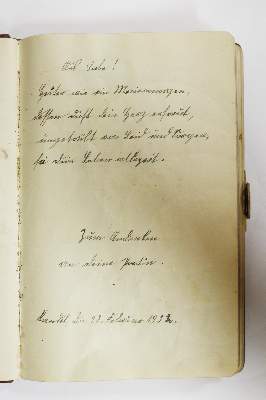 Aus Liebe!
Heiter wie ein Maienmorgen,
dessen Duft dein Herz erfreut,
ungetrübt von Leid und Sorgen,
sei dein Leben allezeit.
Zum Andenken
an deine Patin.
den 22. Februar